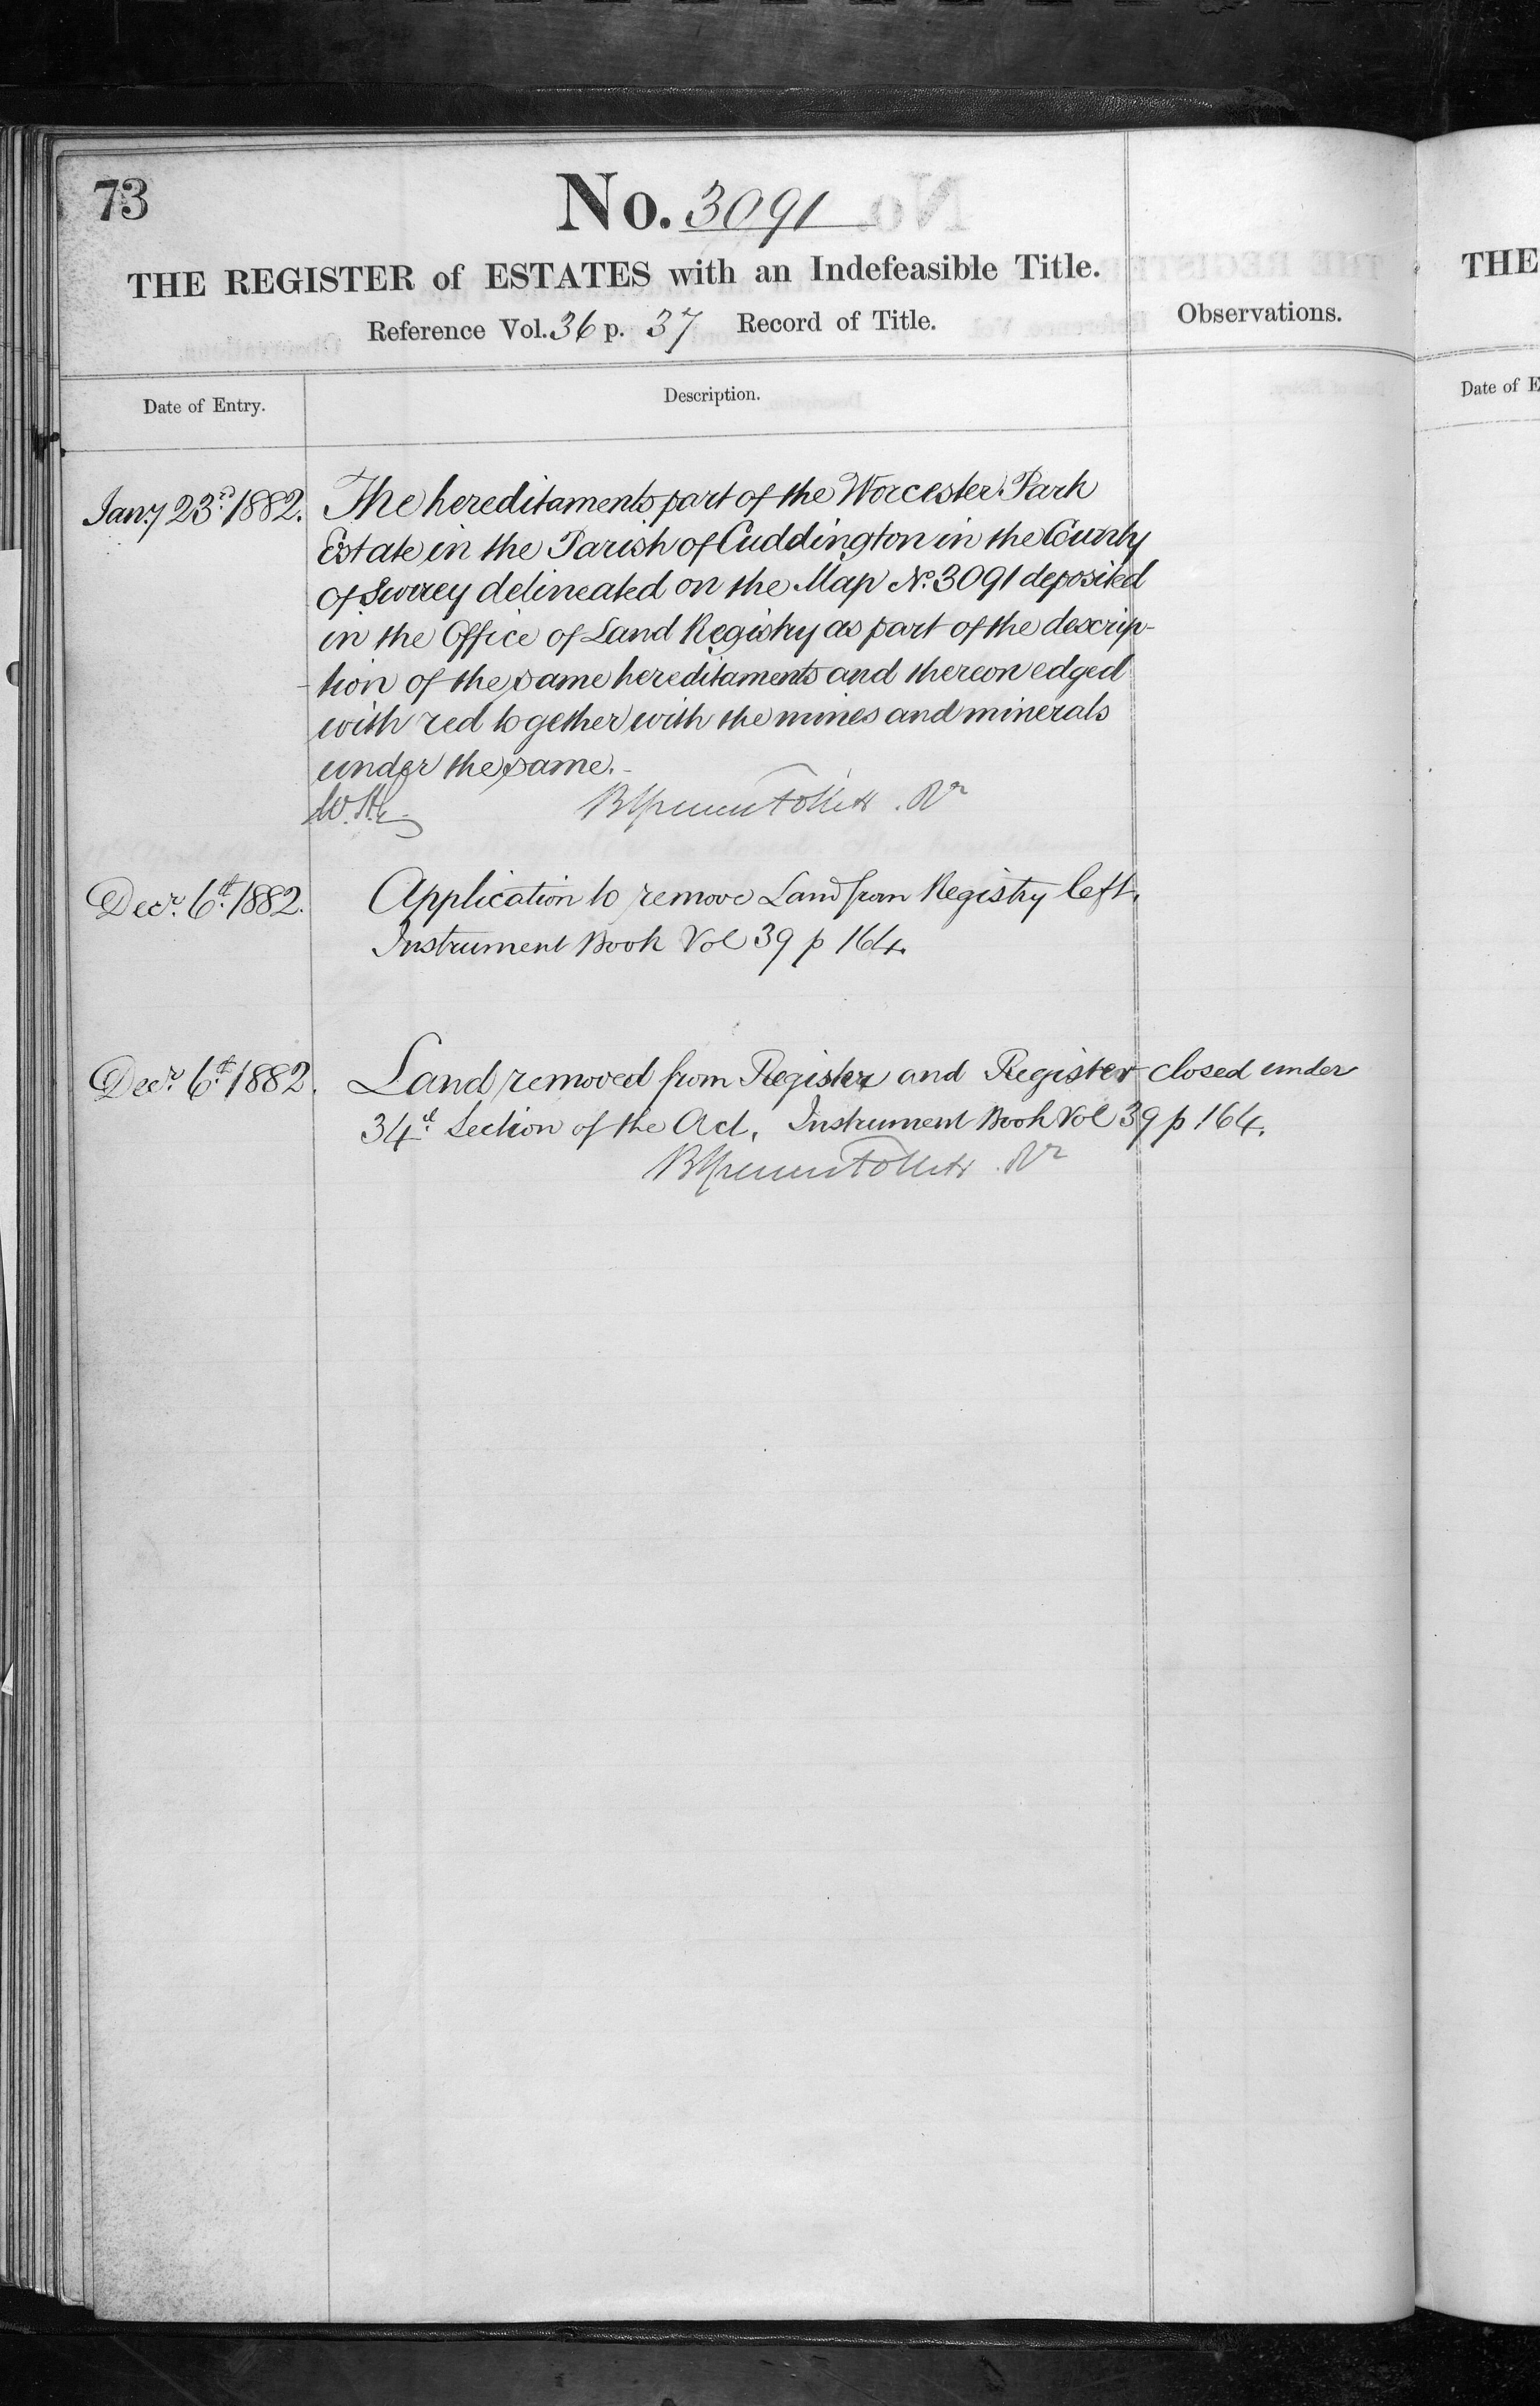 73
No. 3091
THE REGISTER of ESTATES with an Indefeasible Title.
Reference Vol. 36 p. 37 Record of Title.
Observations.
Date of Entry.
Description.
Jany 23rd 1882.
The hereditaments part of the Worcester Park
Estate in the Parish of Cuddington in the County
of Surrey delineated on the Map No. 3091 deposited
in the Office of Land Registry as part of the descrip-
tion of the same hereditaments and thereon edged
with red together with the mines and minerals
under the same.
Follett. Rr
Decr. 6th 1882.
Application to remove Land from Registry left.
Instrument Book Vol 39 p 164.
Decr. 6th 1882.
Land removed from Register and Register closed under
34th Section of the Act, Instrument Book Vol 39 p 164.
Follett. Rr
THE
Date of E